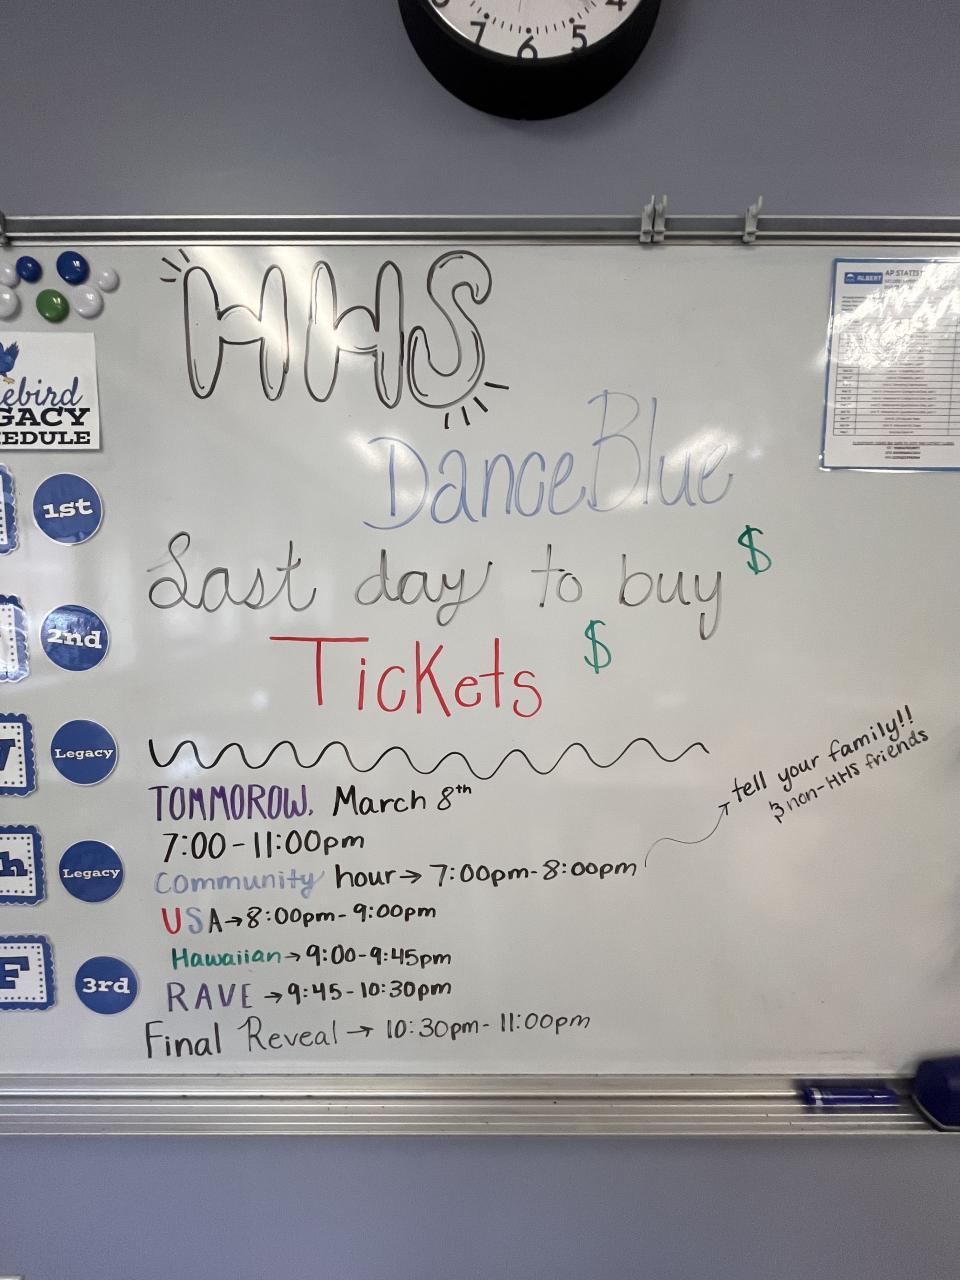 7 6 5
HHS
DanceBlue
Last day to buy $
Tickets $
TOMMOROW, March 8th
7:00-11:00pm
Community hour→ 7:00pm-8:00pm
tell your family!!
& non-HHS friends
USA→8:00pm-9:00pm
Hawaiian→9:00-9:45pm
RAVE →9:45-10:30pm
Final Reveal→ 10:30pm-11:00pm
ebird
GACY
EDULE
1st
2nd
Legacy
Legacy
F
3rd
ALBERT
AP STATIST